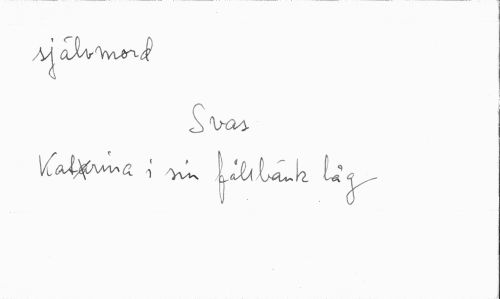 självmord
Svas
Katarina i sin fållbänk låg